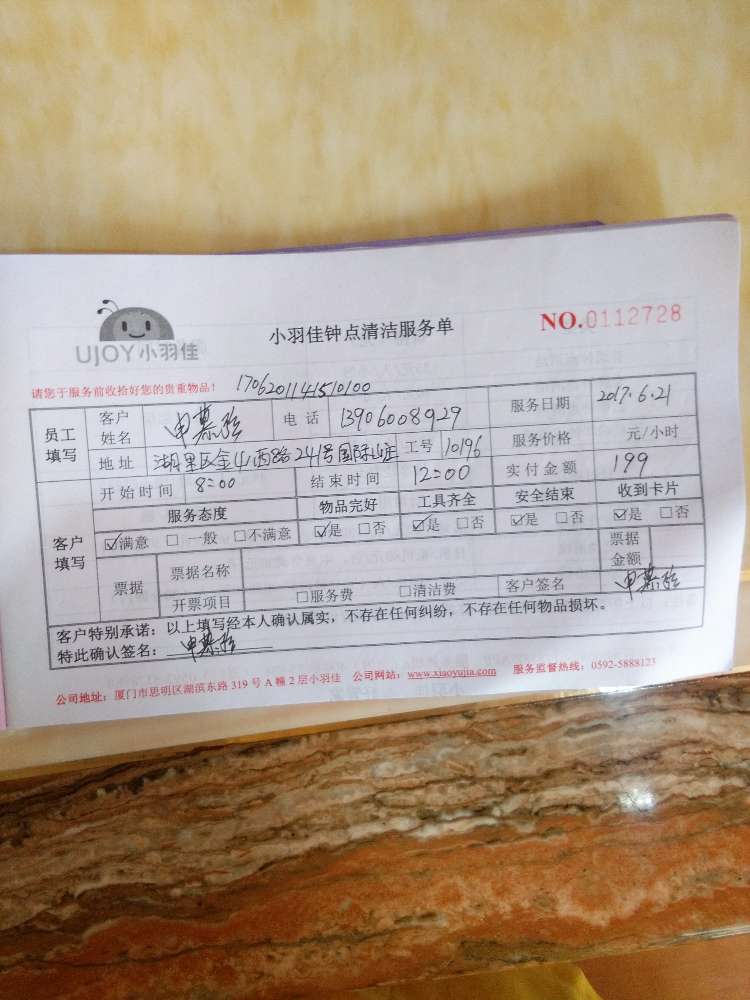 UJOY小羽佳
小羽佳钟点清洁服务单
NO.0112728
请您于服务前收拾好您的贵重物品!
1706201141510100
员工填写 客户姓名 申慕 电话 13906008929 服务日期 2017.6.21
地址 湖里区金山西路241号国际山庄 工号 10196 服务价格 元/小时
客户填写 开始时间 8:00 结束时间 12:00 实付金额 199
服务态度 物品完好 工具齐全 安全结束 收到卡片
☑满意 □ 一般 □不满意 ☑是 □否 ☑是 □否 ☑是 □否 ☑是 □否
票据 票据名称 票据金额
开票项目 □服务费 □清洁费 客户签名 申慕
客户特别承诺:以上填写经本人确认属实,不存在任何纠纷,不存在任何物品损坏。
特此确认签名: 申慕
公司地址:厦门市思明区湖滨东路 319 号 A 幢 2 层小羽佳 公司网站:www.xiaoyujia.com 服务监督热线:0592-5888123